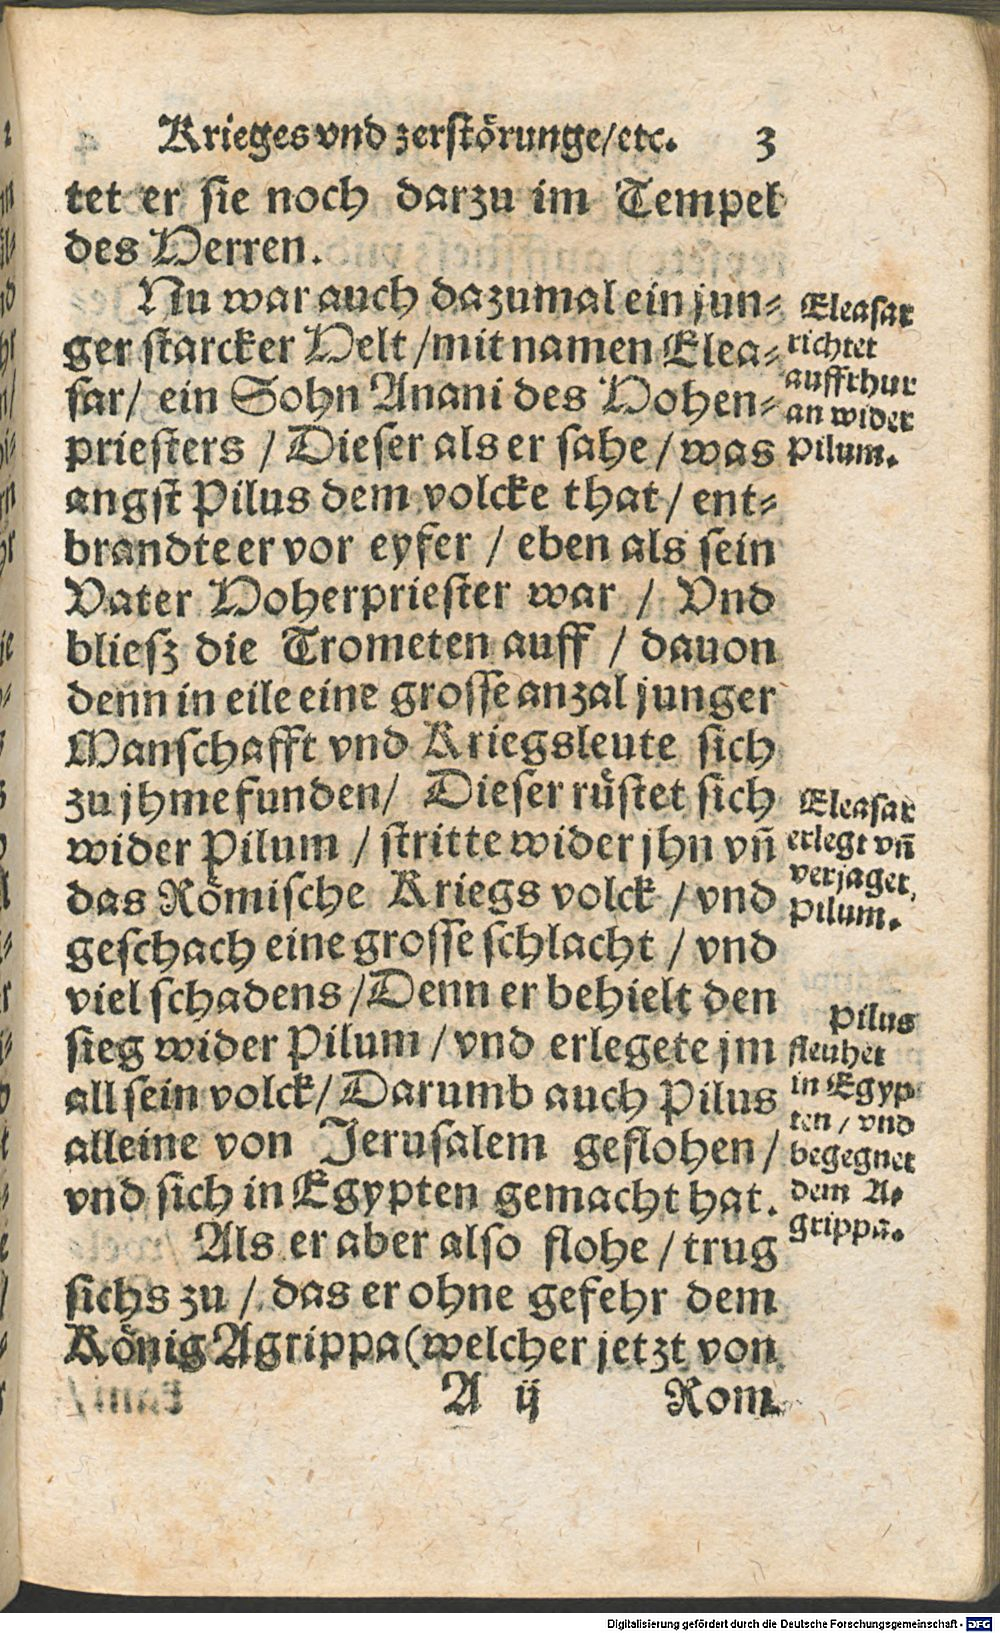 Krieges vnd zerstörunge/etc. 3
tet er sie noch darzu im Tempel
des Herren.
Nu war auch dazumal ein jun⸗
ger starcker Helt/mit namen Elea⸗
sar/ ein Sohn Anani des Hohen⸗
priesters / Dieser als er sahe / was
angst Pilus dem volcke that / ent⸗
brandte er vor eyfer / eben als sein
Vater Hoherpriester war / Vnd
bliesz die Trometen auff / dauon
denn in eile eine grosse anzal junger
Manschafft vnd Kriegsleute sich
zu jhme funden/ Dieser rüstet sich
wider Pilum / stritte wider jhn vñ
das Römische Kriegs volck / vnd
geschach eine grosse schlacht / vnd
viel schadens /Denn er behielt den
sieg wider Pilum / vnd erlegete jm
all sein volck/ Darumb auch Pilus
alleine von Jerusalem geflohen /
vnd sich in Egypten gemacht hat.
Als er aber also flohe / trug
sichs zu / das er ohne gefehr dem
König Agrippa (welcher jetzt von
A ij Rom
Eleasar
richtet
auffrhur
an wider
Pilum.
Eleasar
erlegt vñ
verjaget
Pilum.
Pilus
fleuhet
in Egyp
ten / vnd
begegnet
dem A⸗
grippa.
Digitalisierung gefördert durch die Deutsche Forschungsgemeinschaft - DFG